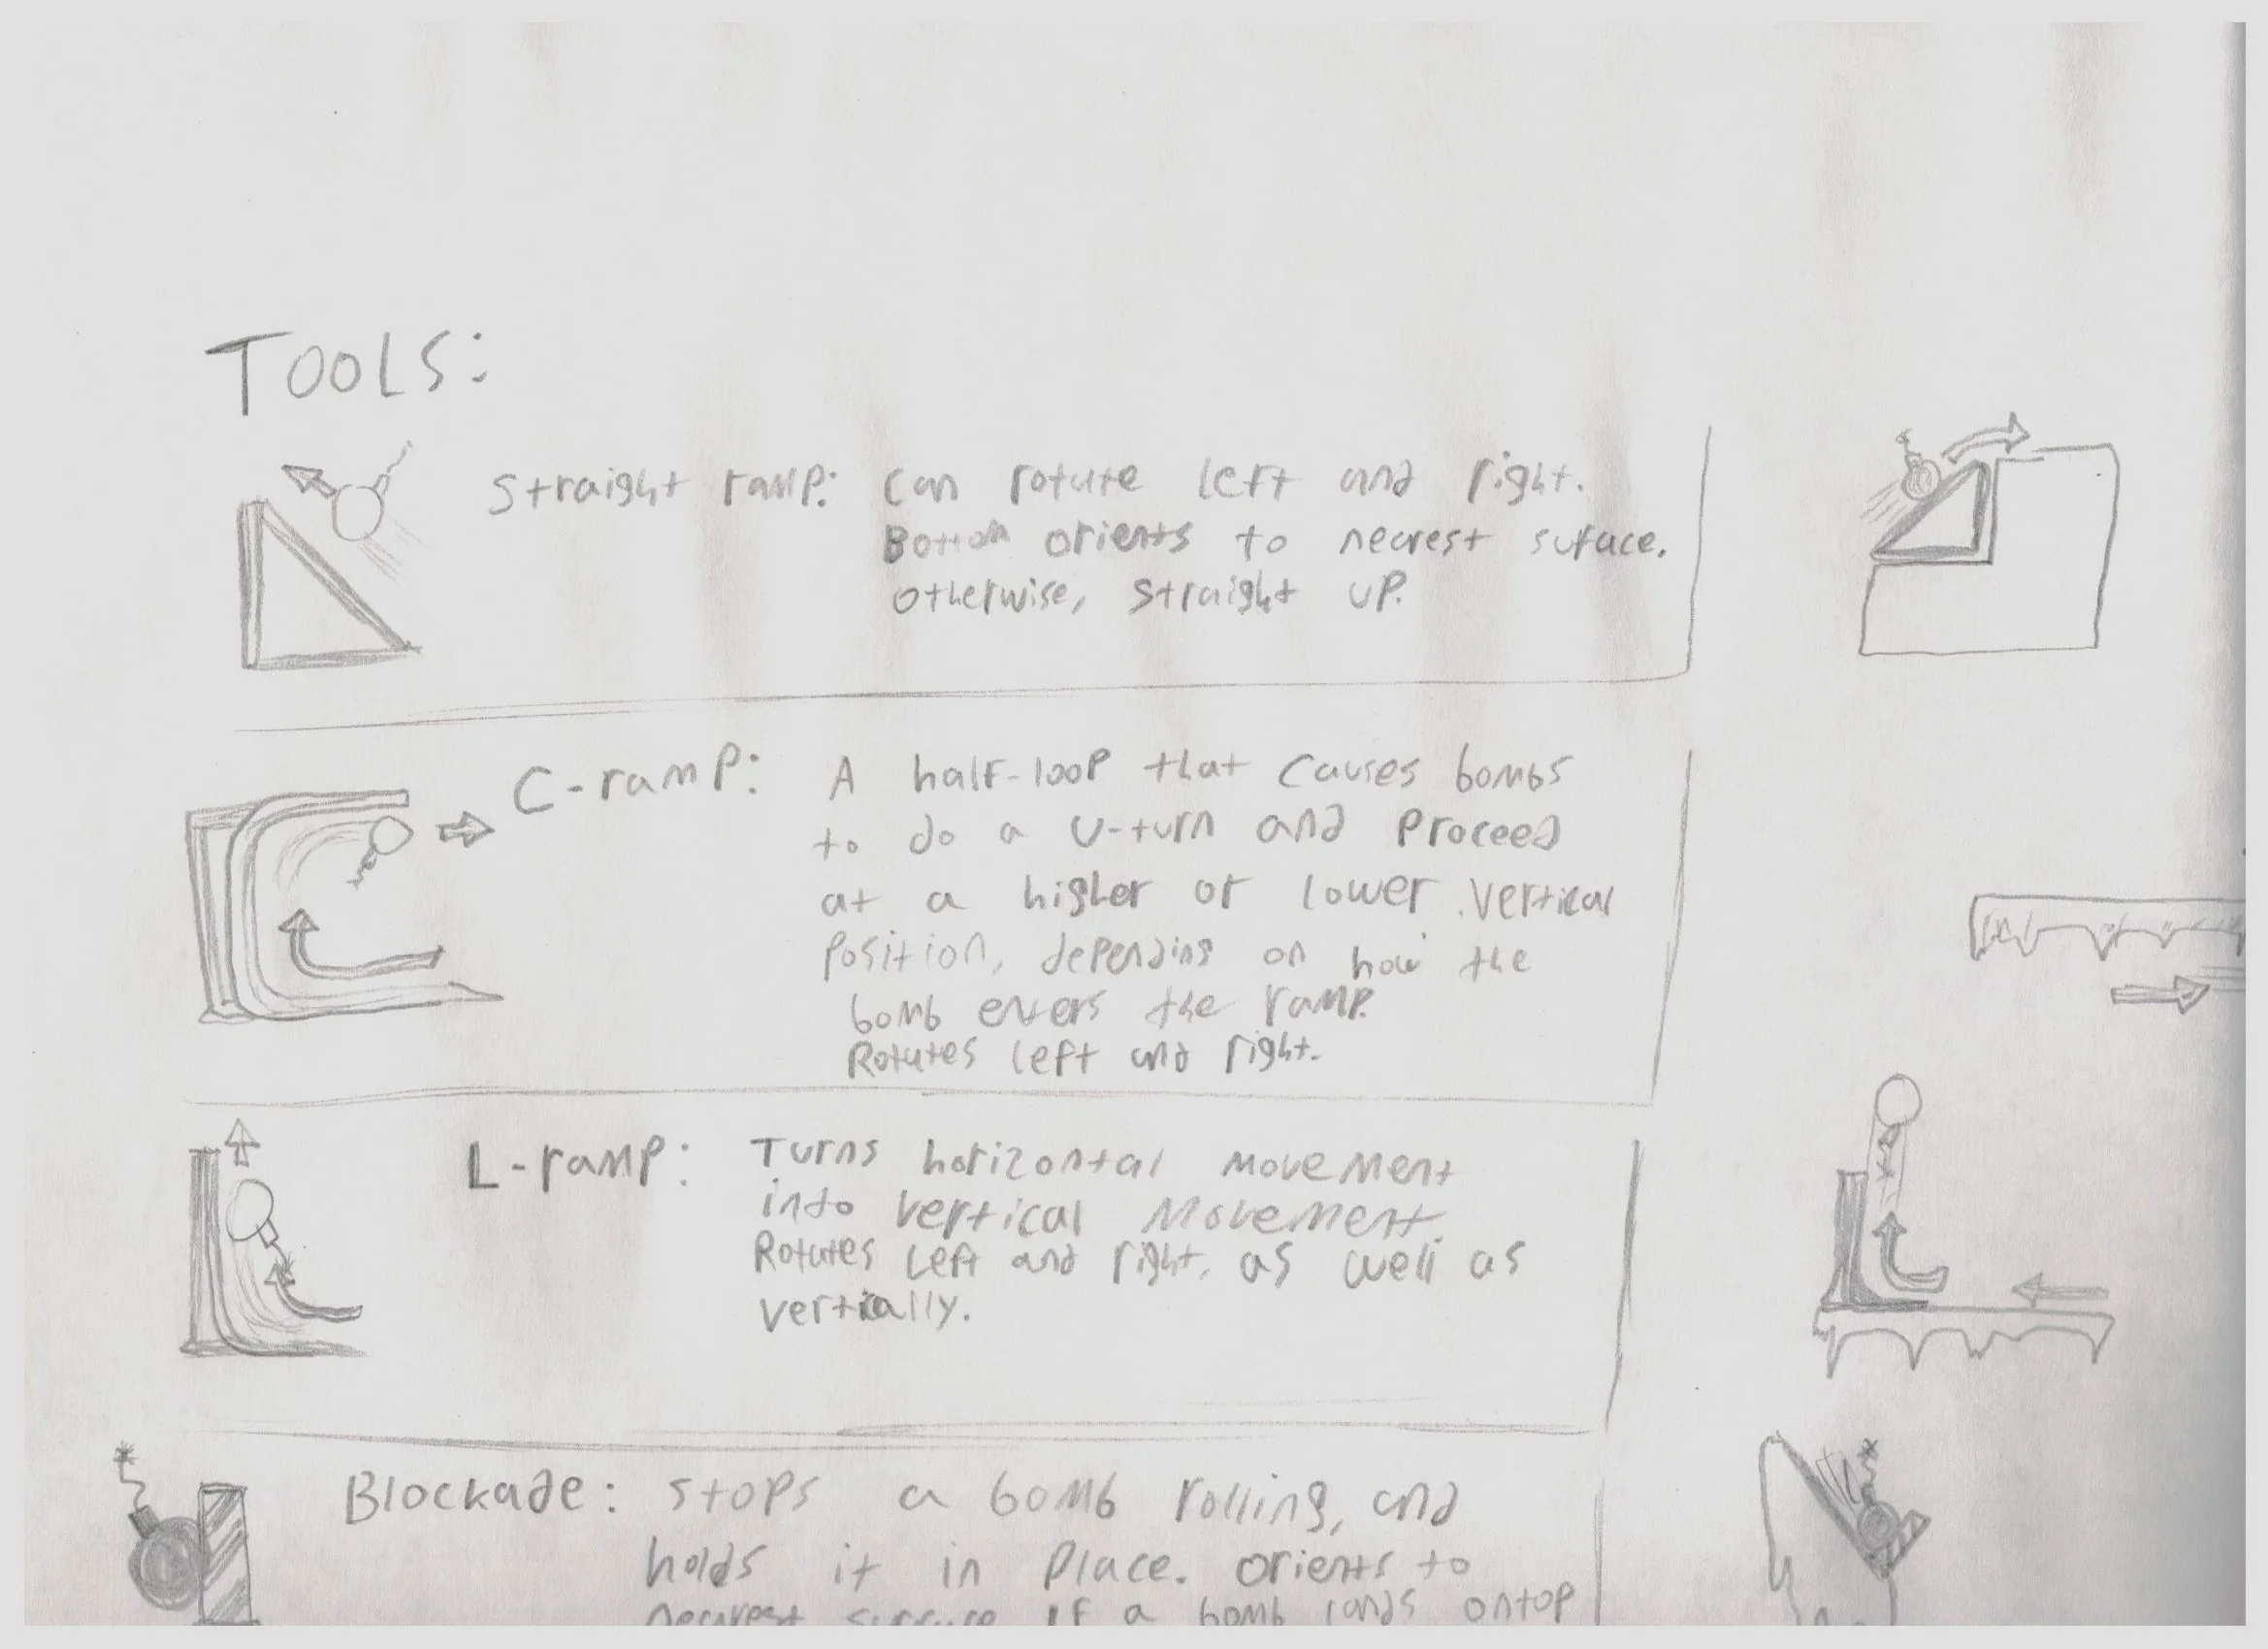 TOOLS:
Straight ramp: Can rotate left and right.
Bottom orients to nearest suface.
otherwise, straight up.
C-ramp: A half-loop that causes bombs
to do a U-turn and proceed
at a higher or lower vertical
position, depending on how the
bomb enters the ramp.
Rotates left and right.
L-ramp: Turns horizontal movement
into vertical movement.
Rotates left and right, as well as
vertically.
Blockade: Stops a bomb rolling, and
holds it in place. Orients to
nearest surface if a bomb lands ontop